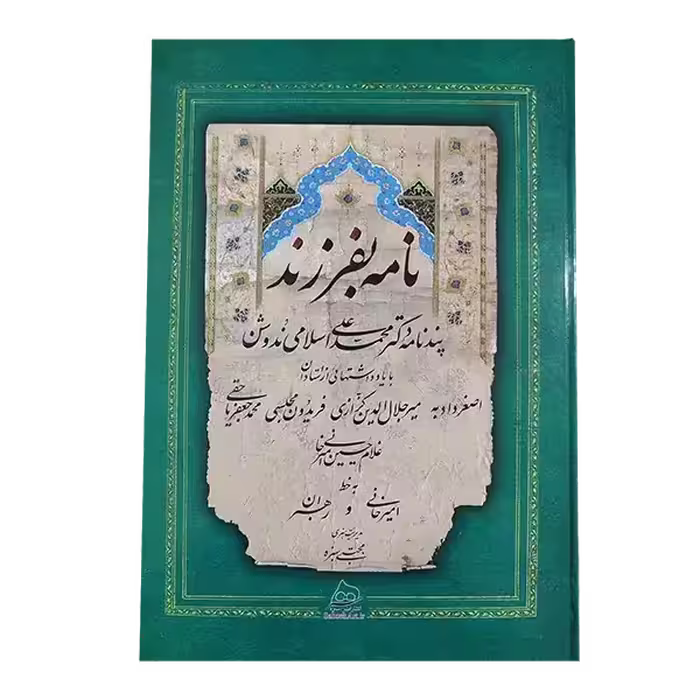 نامه بفرزند
پندنامه دکتر محمدعلی اسلامی ندوشن
با یادداشتهائی از استادان
اصغر دادبه میرجلال الدین کزازی فریدون مجلسی محمدجعفر یاحقی
غلامحسین امیرخانی
به خط
امیرخانی و رهبران
مدیریت هنری
مجتبی سبزه